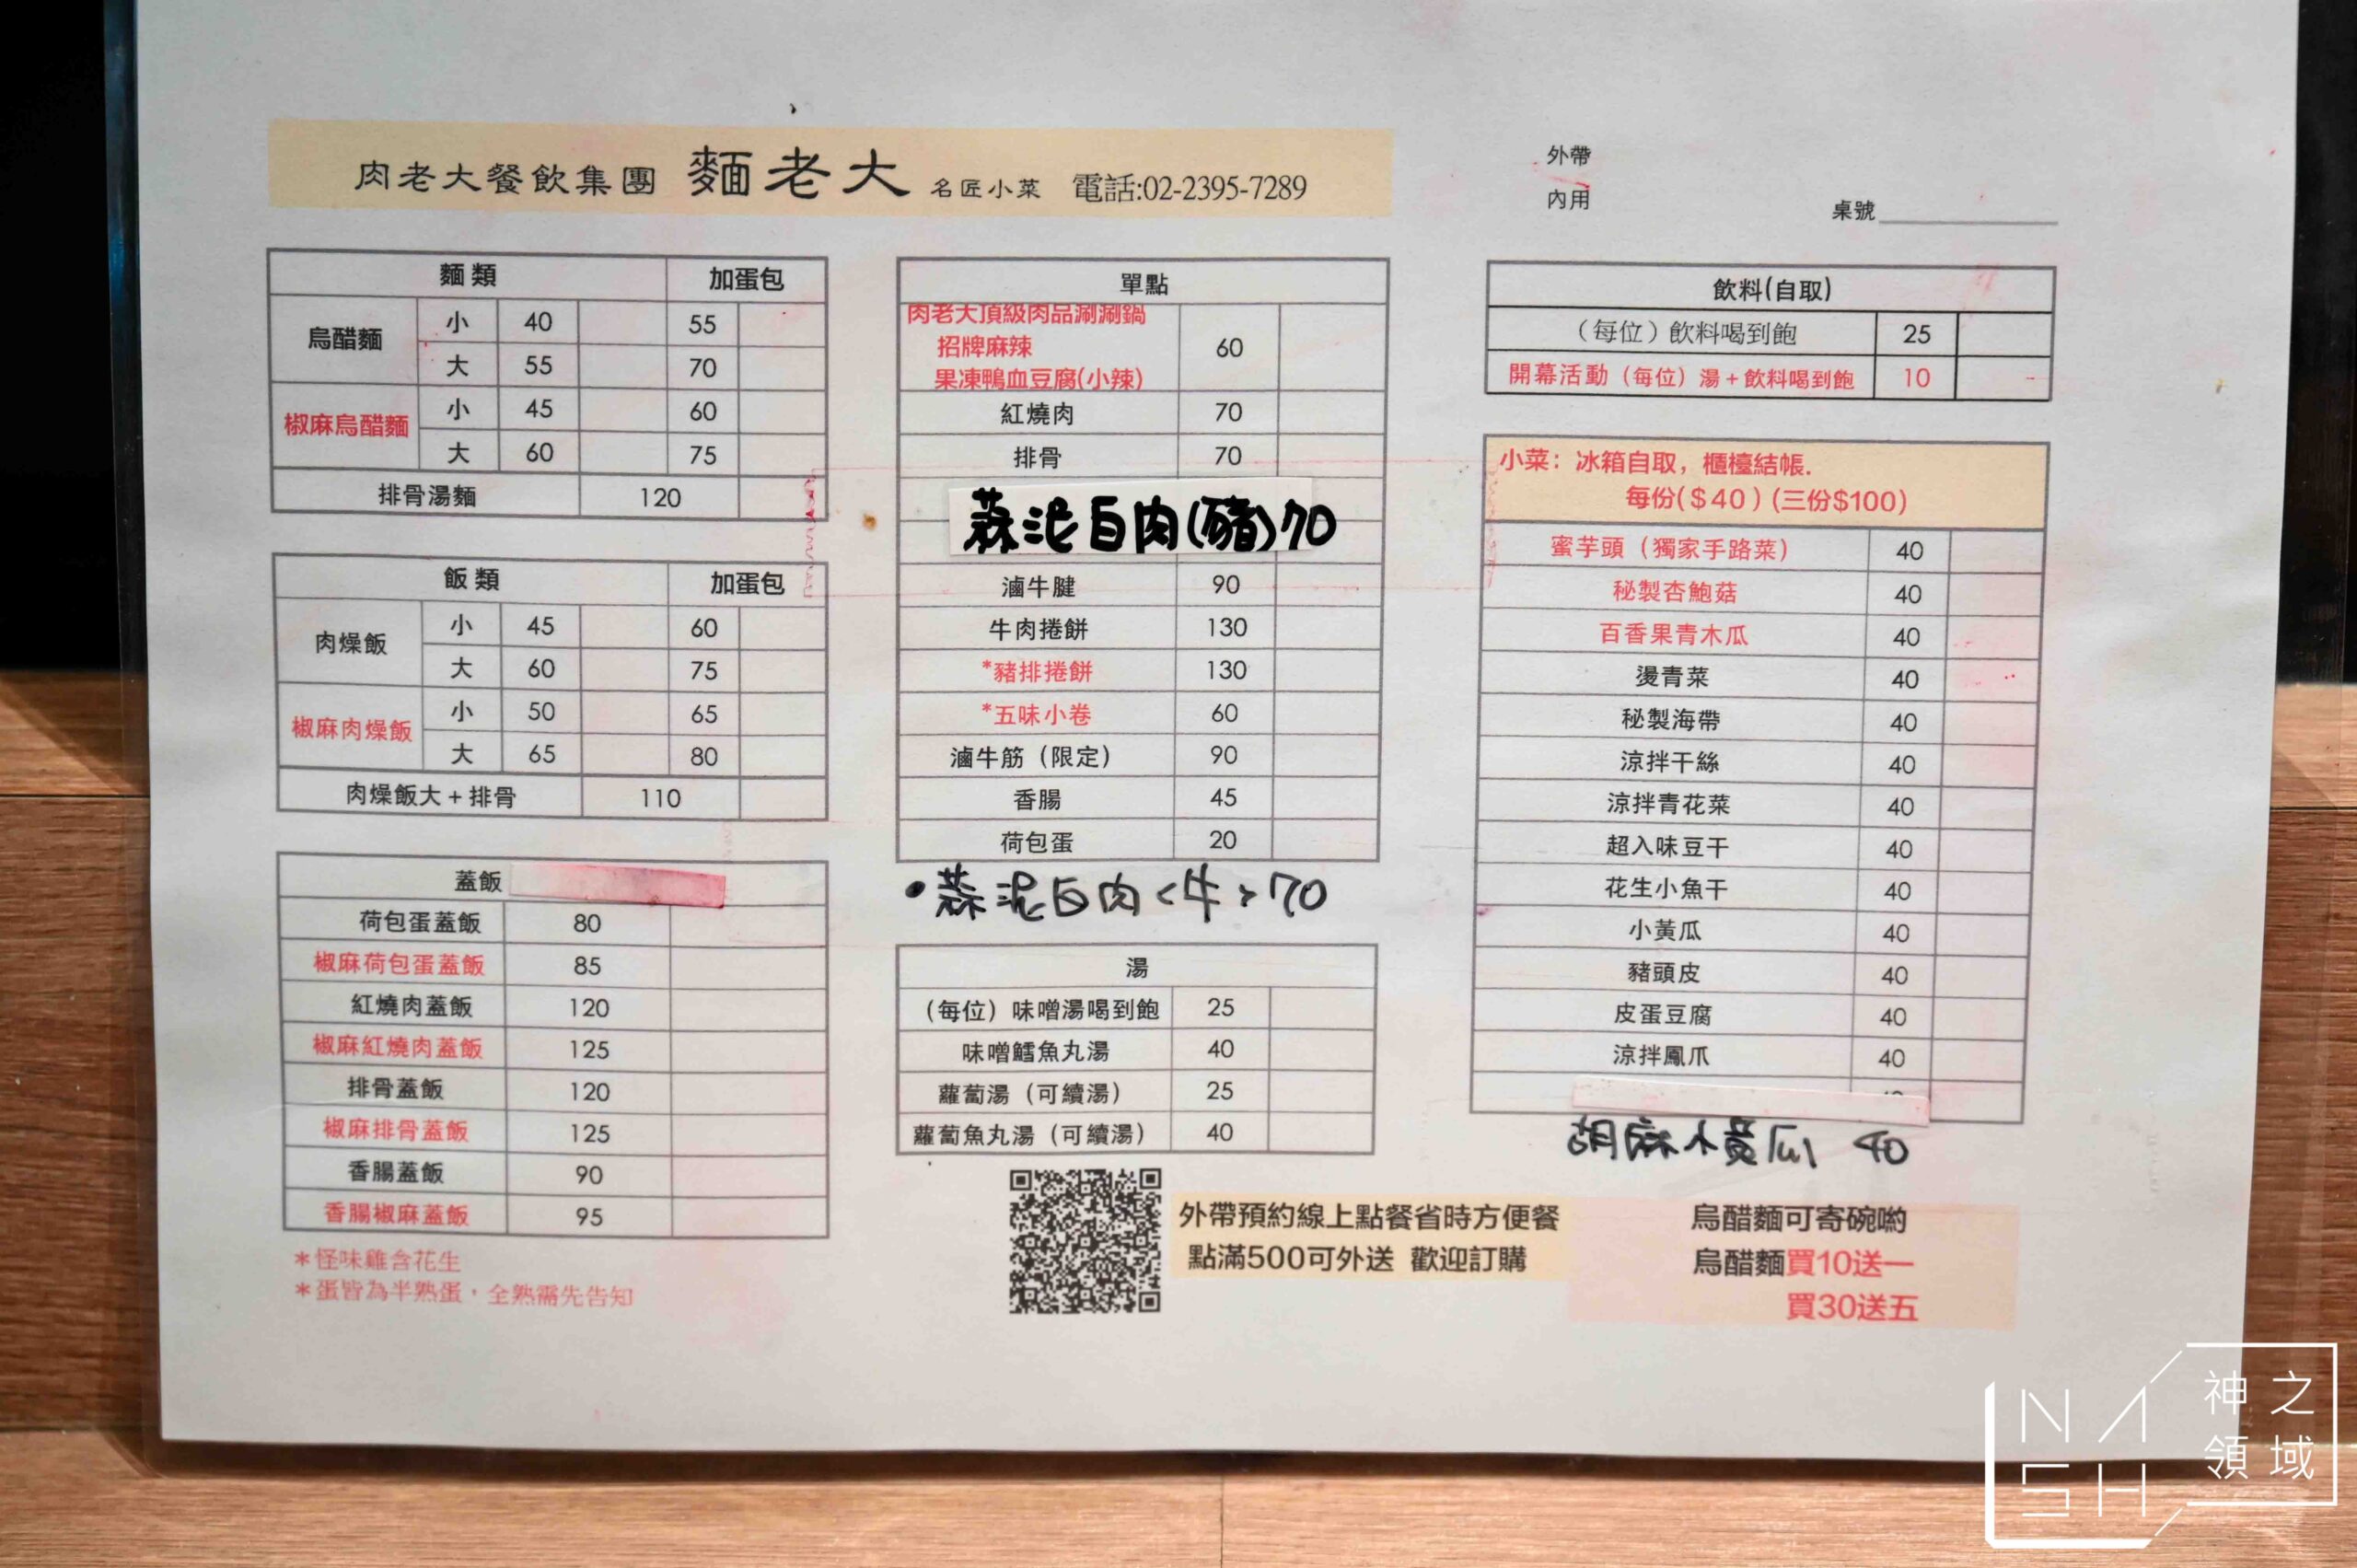 肉老大餐飲集團 麵老大 名匠小菜 電話:02-2395-7289
外帶
內用
桌號
麵類 加蛋包
烏醋麵 小 40 55
大 55 70
椒麻烏醋麵 小 45 60
大 60 75
排骨湯麵 120
飯類 加蛋包
肉燥飯 小 45 60
大 60 75
椒麻肉燥飯 小 50 65
大 65 80
肉燥飯大+排骨 110
蓋飯
荷包蛋蓋飯 80
椒麻荷包蛋蓋飯 85
紅燒肉蓋飯 120
椒麻紅燒肉蓋飯 125
排骨蓋飯 120
椒麻排骨蓋飯 125
香腸蓋飯 90
香腸椒麻蓋飯 95
*怪味雞含花生
*蛋皆為半熟蛋,全熟需先告知
單點
肉老大頂級肉品涮涮鍋
招牌麻辣 60
果凍鴨血豆腐(小辣)
紅燒肉 70
排骨 70
蒜泥白肉(豬)70
滷牛腱 90
牛肉捲餅 130
*豬排捲餅 130
*五味小卷 60
滷牛筋(限定) 90
香腸 45
荷包蛋 20
•蒜泥白肉<牛>70
湯
(每位)味噌湯喝到飽 25
味噌鱈魚丸湯 40
蘿蔔湯(可續湯) 25
蘿蔔魚丸湯(可續湯) 40
外帶預約線上點餐省時方便餐
點滿500可外送 歡迎訂購
飲料(自取)
(每位)飲料喝到飽 25
開幕活動(每位)湯+飲料喝到飽 10
小菜:冰箱自取,櫃檯結帳.
每份($40)(三份$100)
蜜芋頭(獨家手路菜) 40
秘製杏鮑菇 40
百香果青木瓜 40
燙青菜 40
秘製海帶 40
涼拌干絲 40
涼拌青花菜 40
超入味豆干 40
花生小魚干 40
小黃瓜 40
豬頭皮 40
皮蛋豆腐 40
涼拌鳳爪 40
胡麻小黃瓜 40
烏醋麵可寄碗喲
烏醋麵買10送一
買30送五
NASH
神之
領域